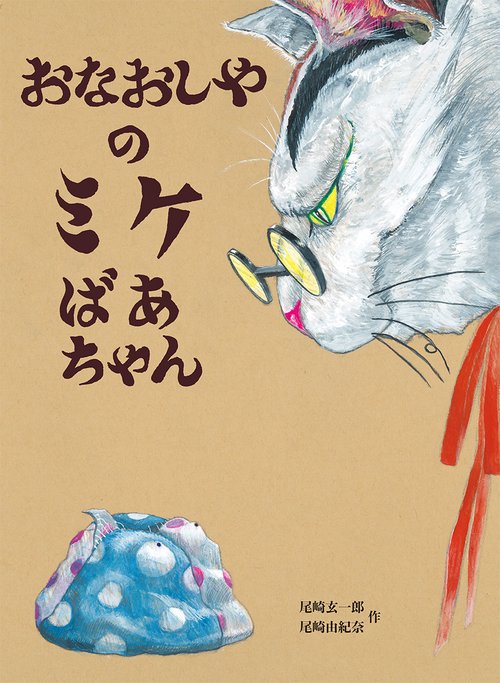 おなおしや
の
ミケ
ばあ
ちゃん
尾崎玄一郎
尾崎由紀奈
作